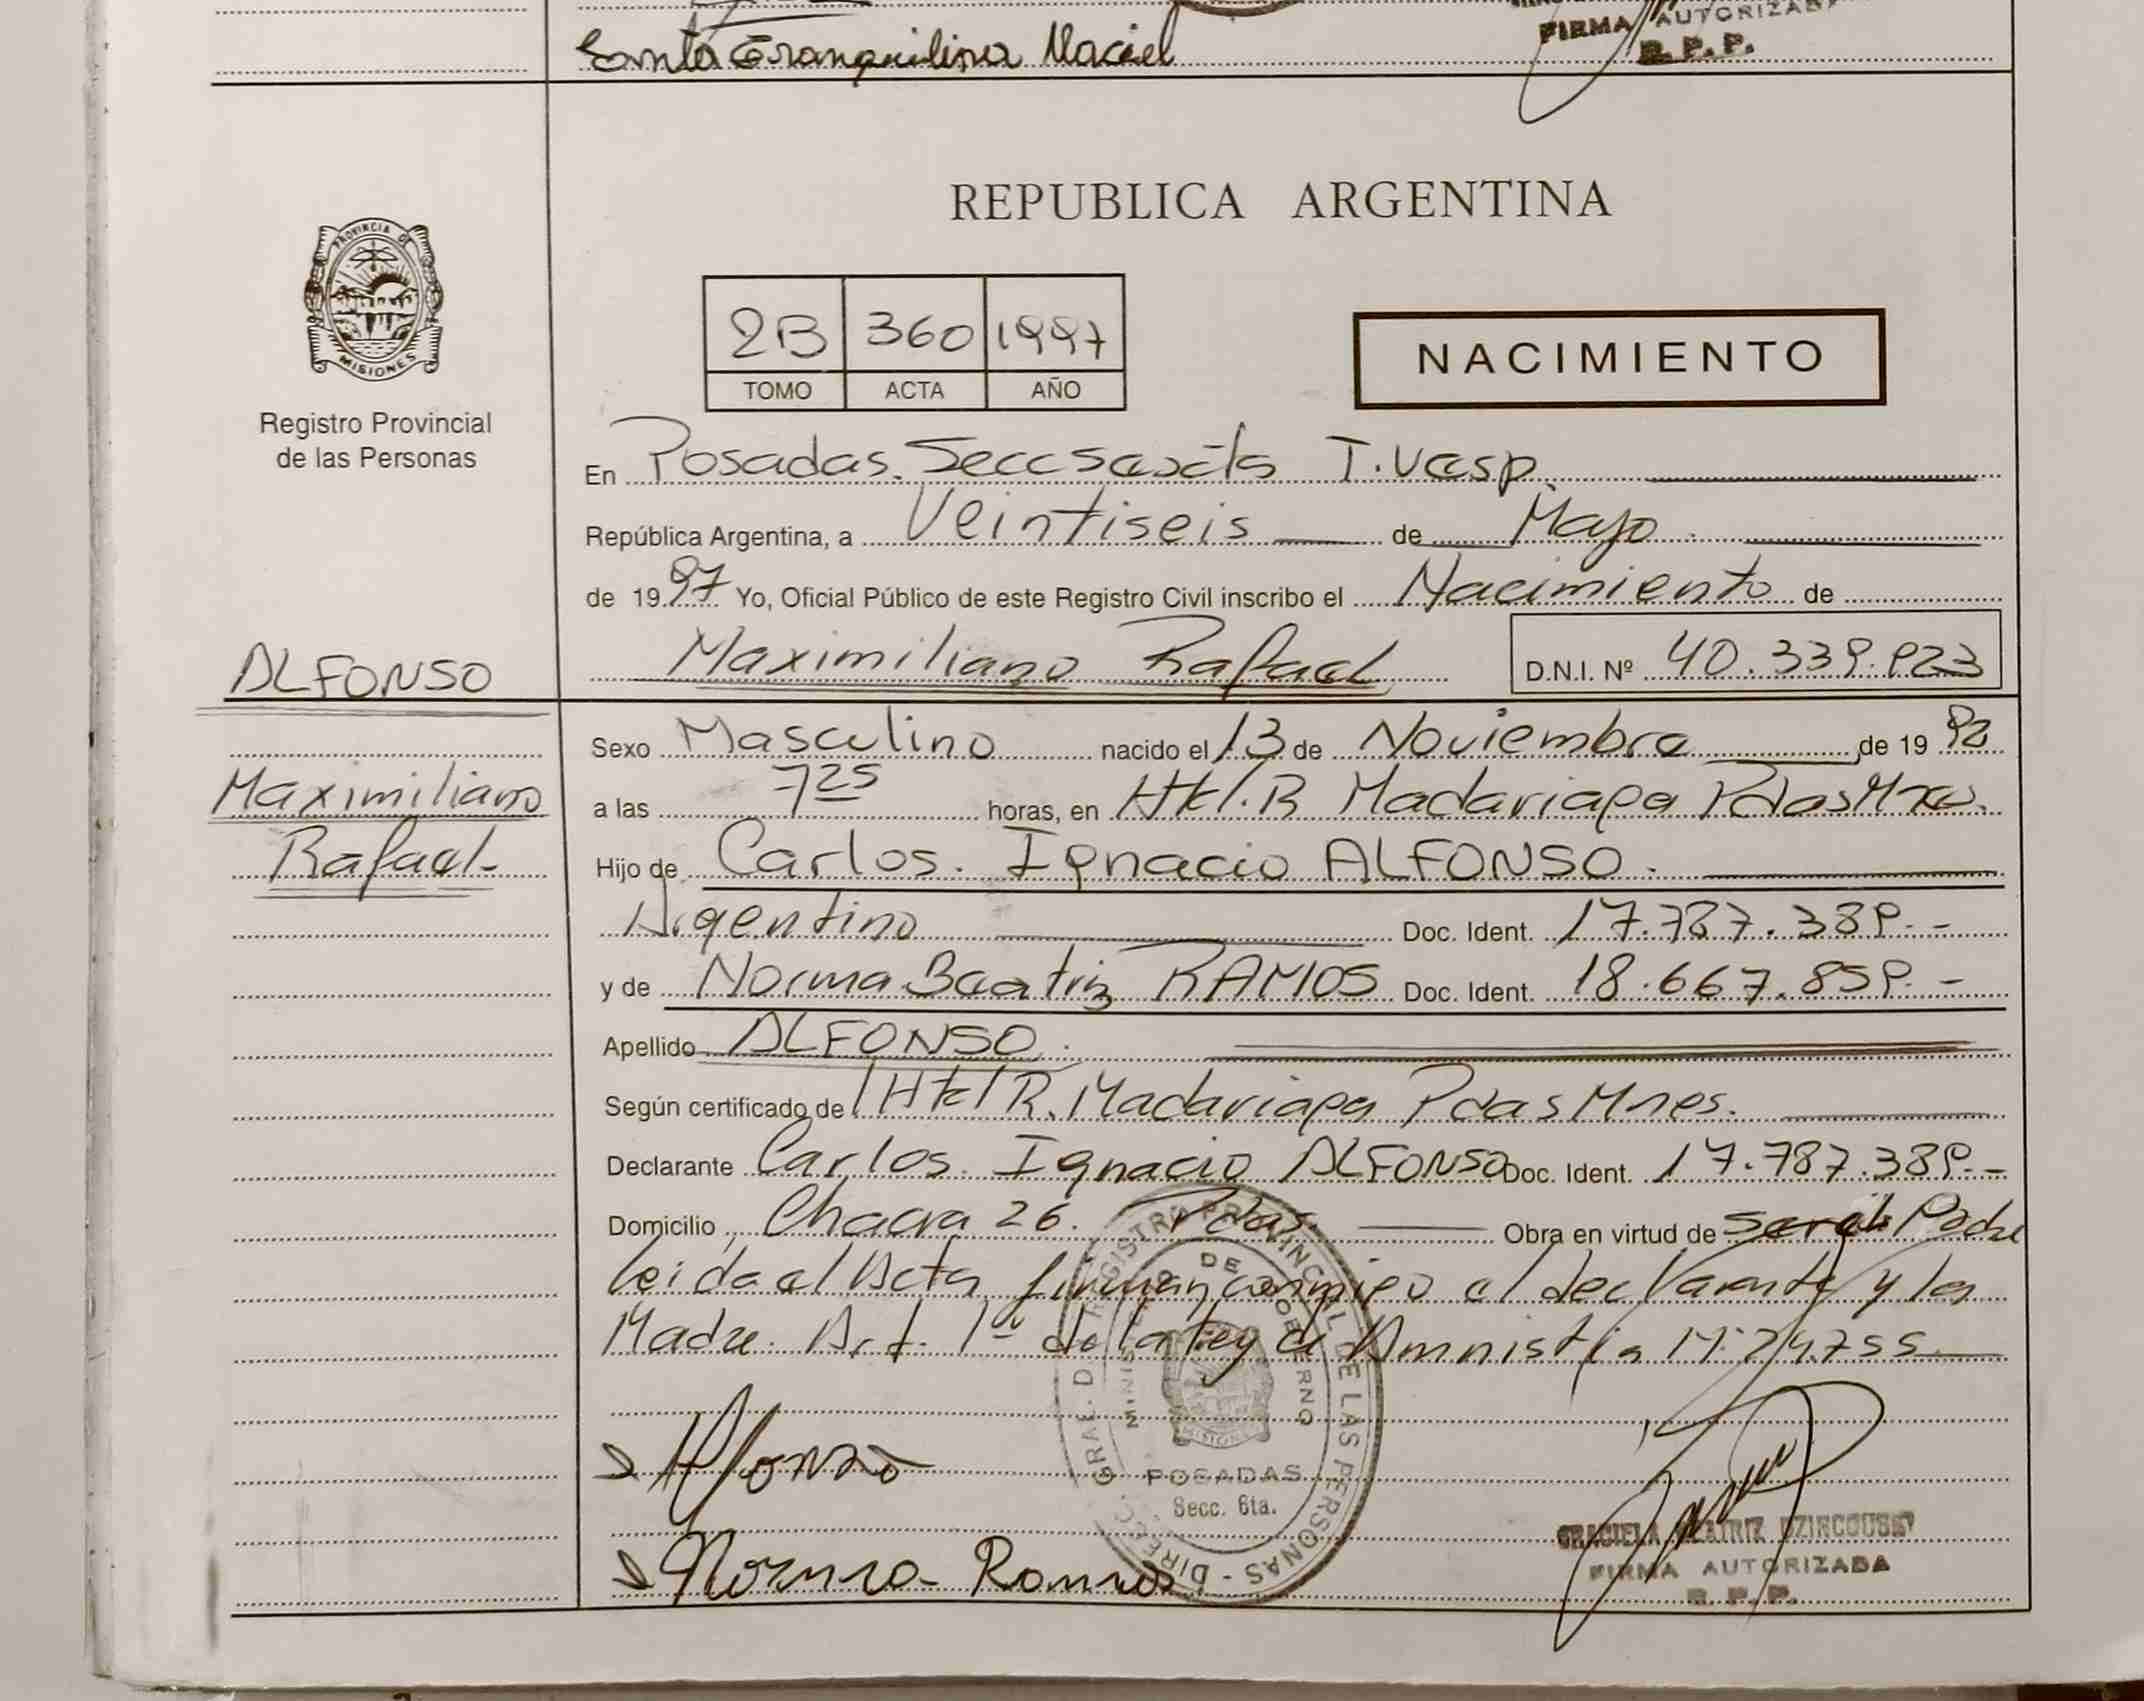 Santa Tranquilina Maciel
FIRMA AUTORIZADA
R. P. P.
PROVINCIA DE
MISIONES
Registro Provincial
de las Personas
REPUBLICA ARGENTINA
2B 360 1997
TOMO ACTA AÑO
NACIMIENTO
En Posadas. Secc sexta T. Vesp.
República Argentina, a Veintiseis de Mayo
de 1997 Yo, Oficial Público de este Registro Civil inscribo el Nacimiento de
ALFONSO
Maximiliano Rafael D.N.I. Nº 40.339.923
Maximiliano
Rafael-
Sexo Masculino nacido el 13 de Noviembre de 19
a las 7 25 horas, en Htal. R Madariaga Pdas Mnes.
Hijo de Carlos. Ignacio ALFONSO.
Argentino Doc. Ident. 17.787.389.-
y de Norma Beatriz RAMOS Doc. Ident. 18.667.859.-
Apellido ALFONSO.
Según certificado de Htal R. Madariaga Pdas Mnes.
Declarante Carlos. Ignacio ALFONSO Doc. Ident. 17.787.389.-
Domicilio Chacra 26. Pdas. Obra en virtud de ser el Padre
leida el Acta firman conmigo el declarante y la
Madre. Art. 1º de la ley de Amnistia Nº 24.755
Alfonso
Norma Ramos
DIREC. GRAL. DEL REGISTRO PROVINCIAL DE LAS PERSONAS -
MINISTERIO DE GOBIERNO
MISIONES
POSADAS
Secc. 6ta.
GRACIELA BEATRIZ
FIRMA AUTORIZADA
R. P. P.